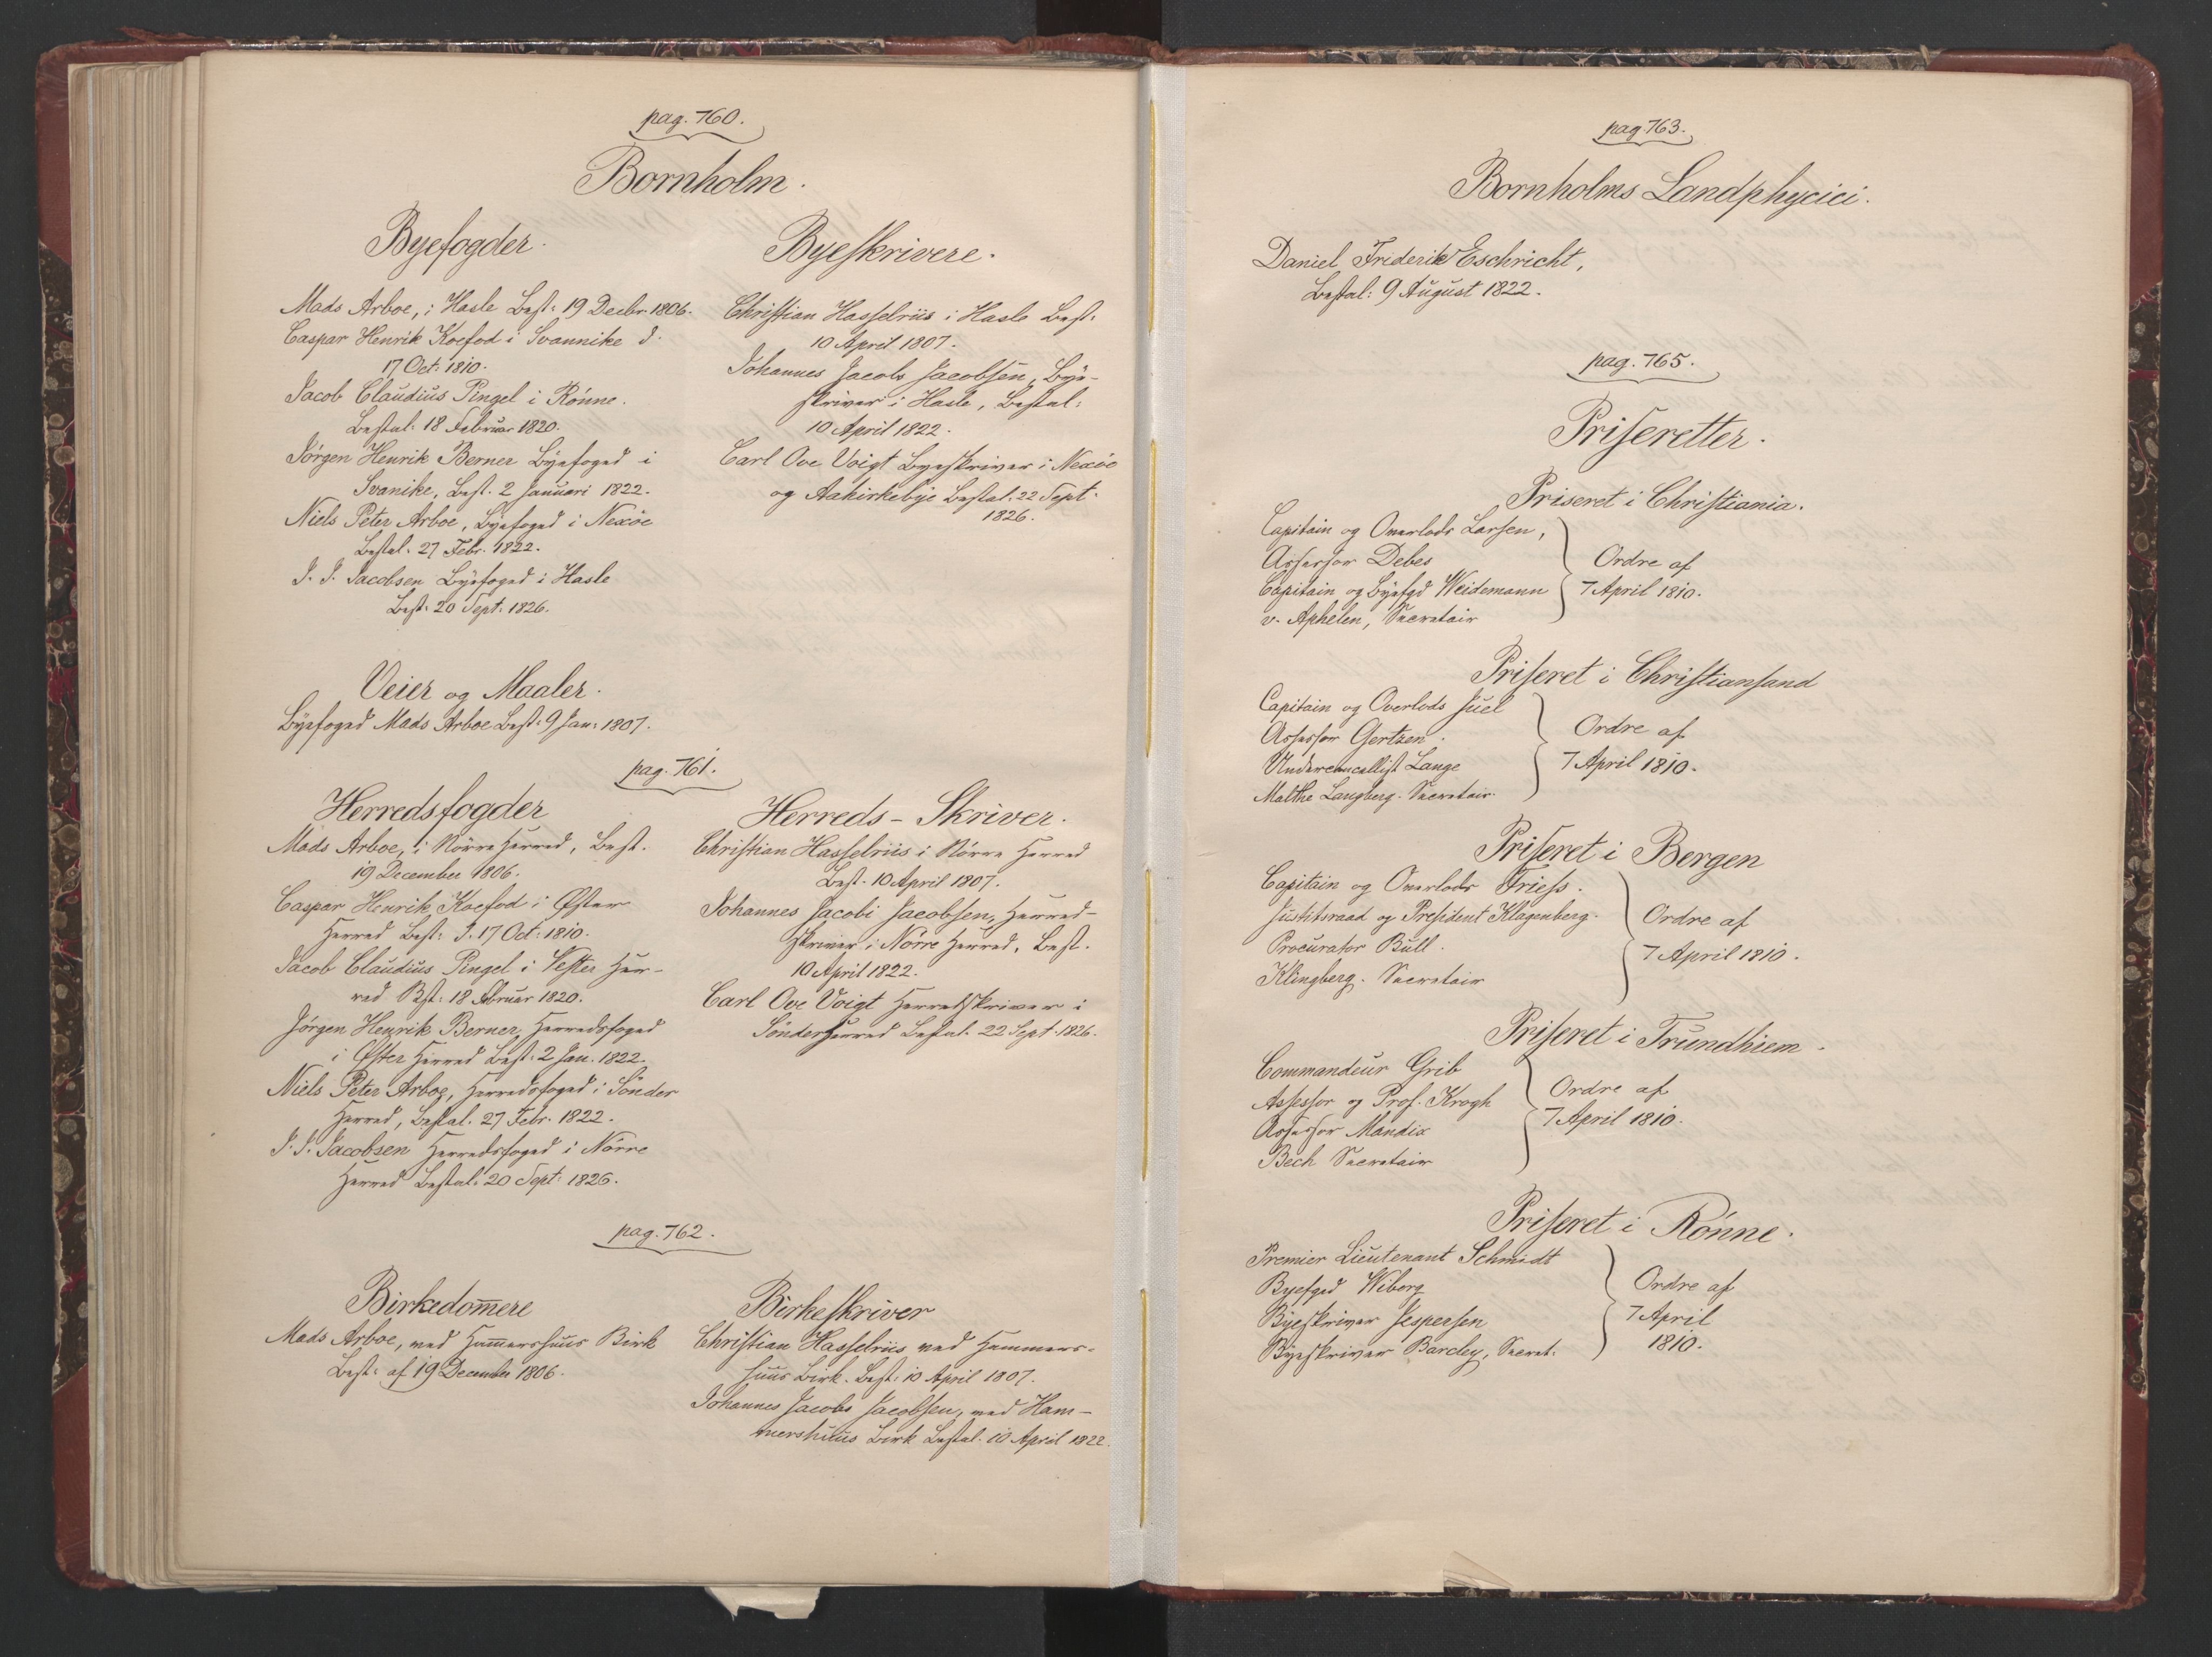 pag. 760.
Bornholm.
Byefogder.
Mads Arboe, i Hasle Best: 19 Decbr 1806.
Caspar Henrik Koefod i Svannike d.
17 Oct: 1810.
Jacob Claudius Pingel i Rönne.
Bestal: 18 Februar 1820.
Jörgen Henrik Berner Byefoged i
Svanike, Best. 2 Januari 1822.
Niels Peter Arboe, Byefoged i Nexöe
Bestal: 27 Febr. 1822.
J. J. Jacobsen Byefoged i Hasle
Best: 20 Sept. 1826.
Byeskrivere.
Christian Hasselriis i Hasle Best:
10 April 1807.
Johannes Jacobi Jacobsen, Bye-
skriver i Hasle, Bestal:
10 April 1822.
Carl Ove Voigt Byeskriver i Nexöe
og Aakirkebye Bestal. 22 Sept.
1826.
Veier og Maaler.
Byefoged Mads Arboe Best: 9 Jan: 1807.
pag. 761.
Herredsfogder
Mads Arboe, i Nörre Herred, Best.
19 December 1806.
Caspar Henrik Koefod i Øster
Herred Best: d. 17 Oct: 1810.
Jacob Claudius Pingel i Vester Her-
red Bst: 18 Februar 1820.
Jörgen Henrik Berner, Herredsfoged
i Øster Herred Best: 2 Jan. 1822.
Niels Peter Arboe, Herredsfoged i Sönder
Herred, Bestal. 27 Febr. 1822.
J. J. Jacobsen Herredsfoged i Nörre
Herred Bestal. 20 Sept: 1826.
Herreds-Skriver.
Christian Hasselriis i Nörre Herred
Best. 10 April 1807.
Johannes Jacobi Jacobsen, Herred-
skriver i Nörre Herred, Best.
10 April 1822.
Carl Ove Voigt Herredsskriver i
Sönder Herred Bestal. 22 Sept. 1826.
pag. 762.
Birkedom̄ere
Mads Arboe, ved Ham̄ershuus Birk
Best: af 19 December 1806.
Birkeskriver
Christian Hasselriis ved Hammers-
huus Birk. Best: 10 April 1807.
Johannes Jacobi Jacobsen, ved Ham-
mershuus Birk Bestal. 10 April 1822.
pag. 763.
Bornholms Landphycici.
Daniel Friderik Eschricht,
Bestal: 9 August 1822.
pag. 765.
Priseretter.
Priseret i Christiania.
Capitain og Overlods Larsen,
Assessor Debes
Capitain og Byefgd Weidemann
v. Aphelen, Secretair
Ordre af
7 April 1810.
Priseret i Christiansand
Capitain og Overlods Juel
Assessor Gertzen.
Undercancellist Lange
Malthe Langberg. Secretair.
Ordre af
7 April 1810.
Priseret i Bergen
Capitain og Overlods Friess.
Justitsraad og President Klagenberg.
Procurator Bull.
Klingberg. Secretair
Ordre af
7 April 1810.
Priseret i Trundhiem.
Commandeur Grib
Assessor og Prof. Krogh
Assessor Mandix
Bech Secretair
Ordre af
7 April 1810.
Priseret i Rönne.
Premier Lieutenant Schmidt
Byefged Wiborg
Byeskriver Jespersen
Byeskriver Barcley, Secret:
Ordre af
7 April
1810.